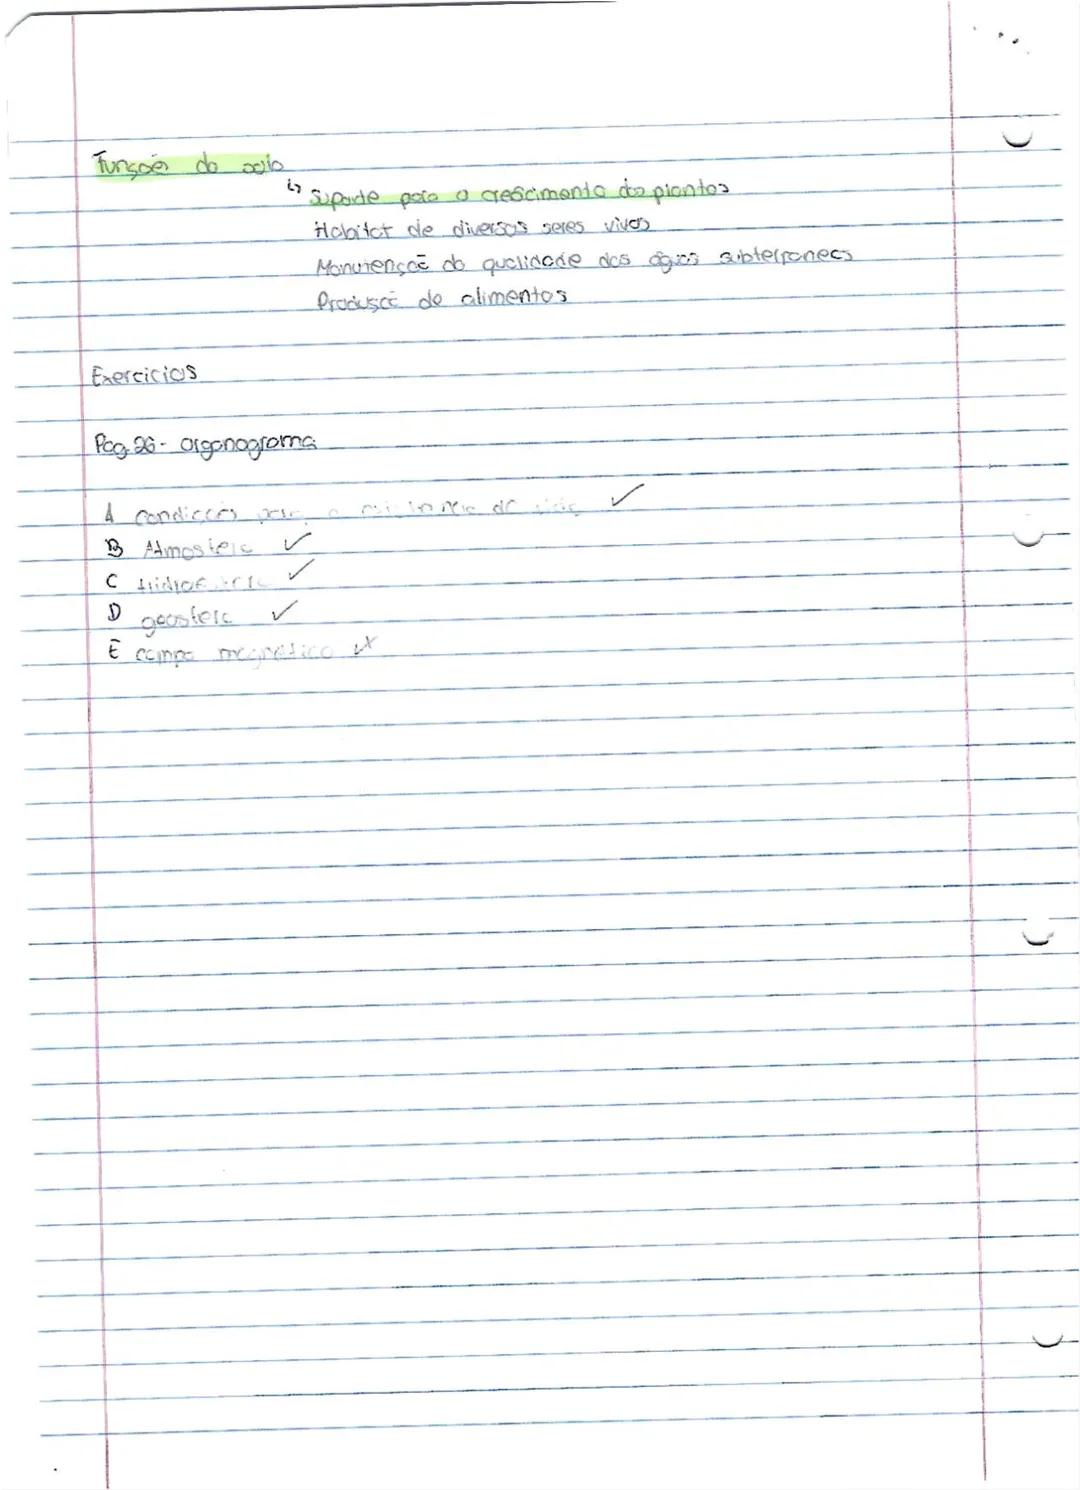 Funções do solo
↳ Suporte para o crescimento das plantas
Habitat de diversos seres vivos
Manutenção da qualidade das águas subterraneas
Produsão de alimentos
Exercicios
Pag 26 - organograma
A condições para a existencia de vida ✓
B Atmosfera ✓
C Hidrosfera ✓
D geosfera ✓
E campo magnético